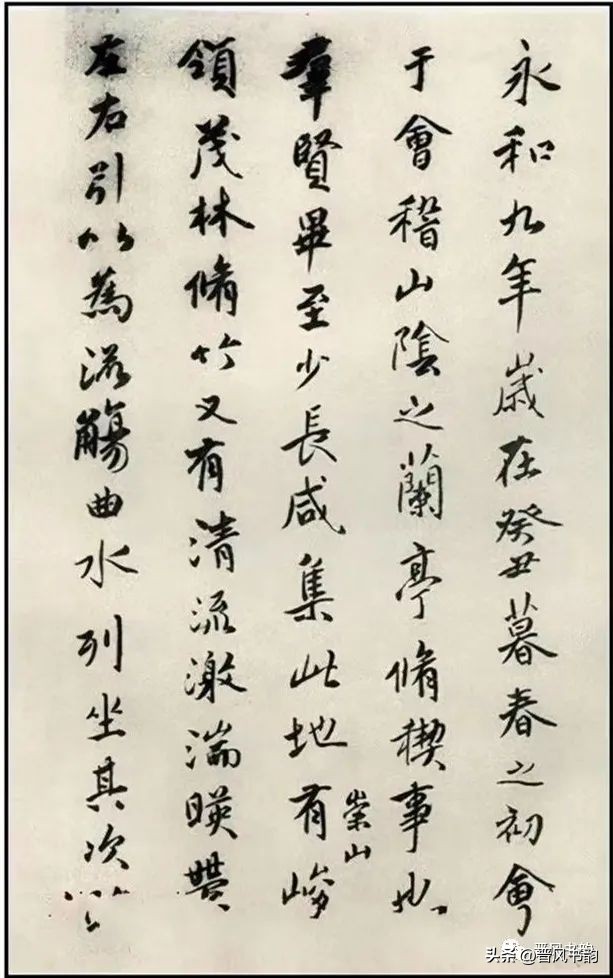 永和九年歲在癸丑暮春之初會
于會稽山陰之蘭亭脩稧事也
羣賢畢至少長咸集此地有崇山峻
領茂林脩竹又有清流激湍暎帶
左右引以為流觴曲水列坐其次
晋风书韵
头条@晋风书韵